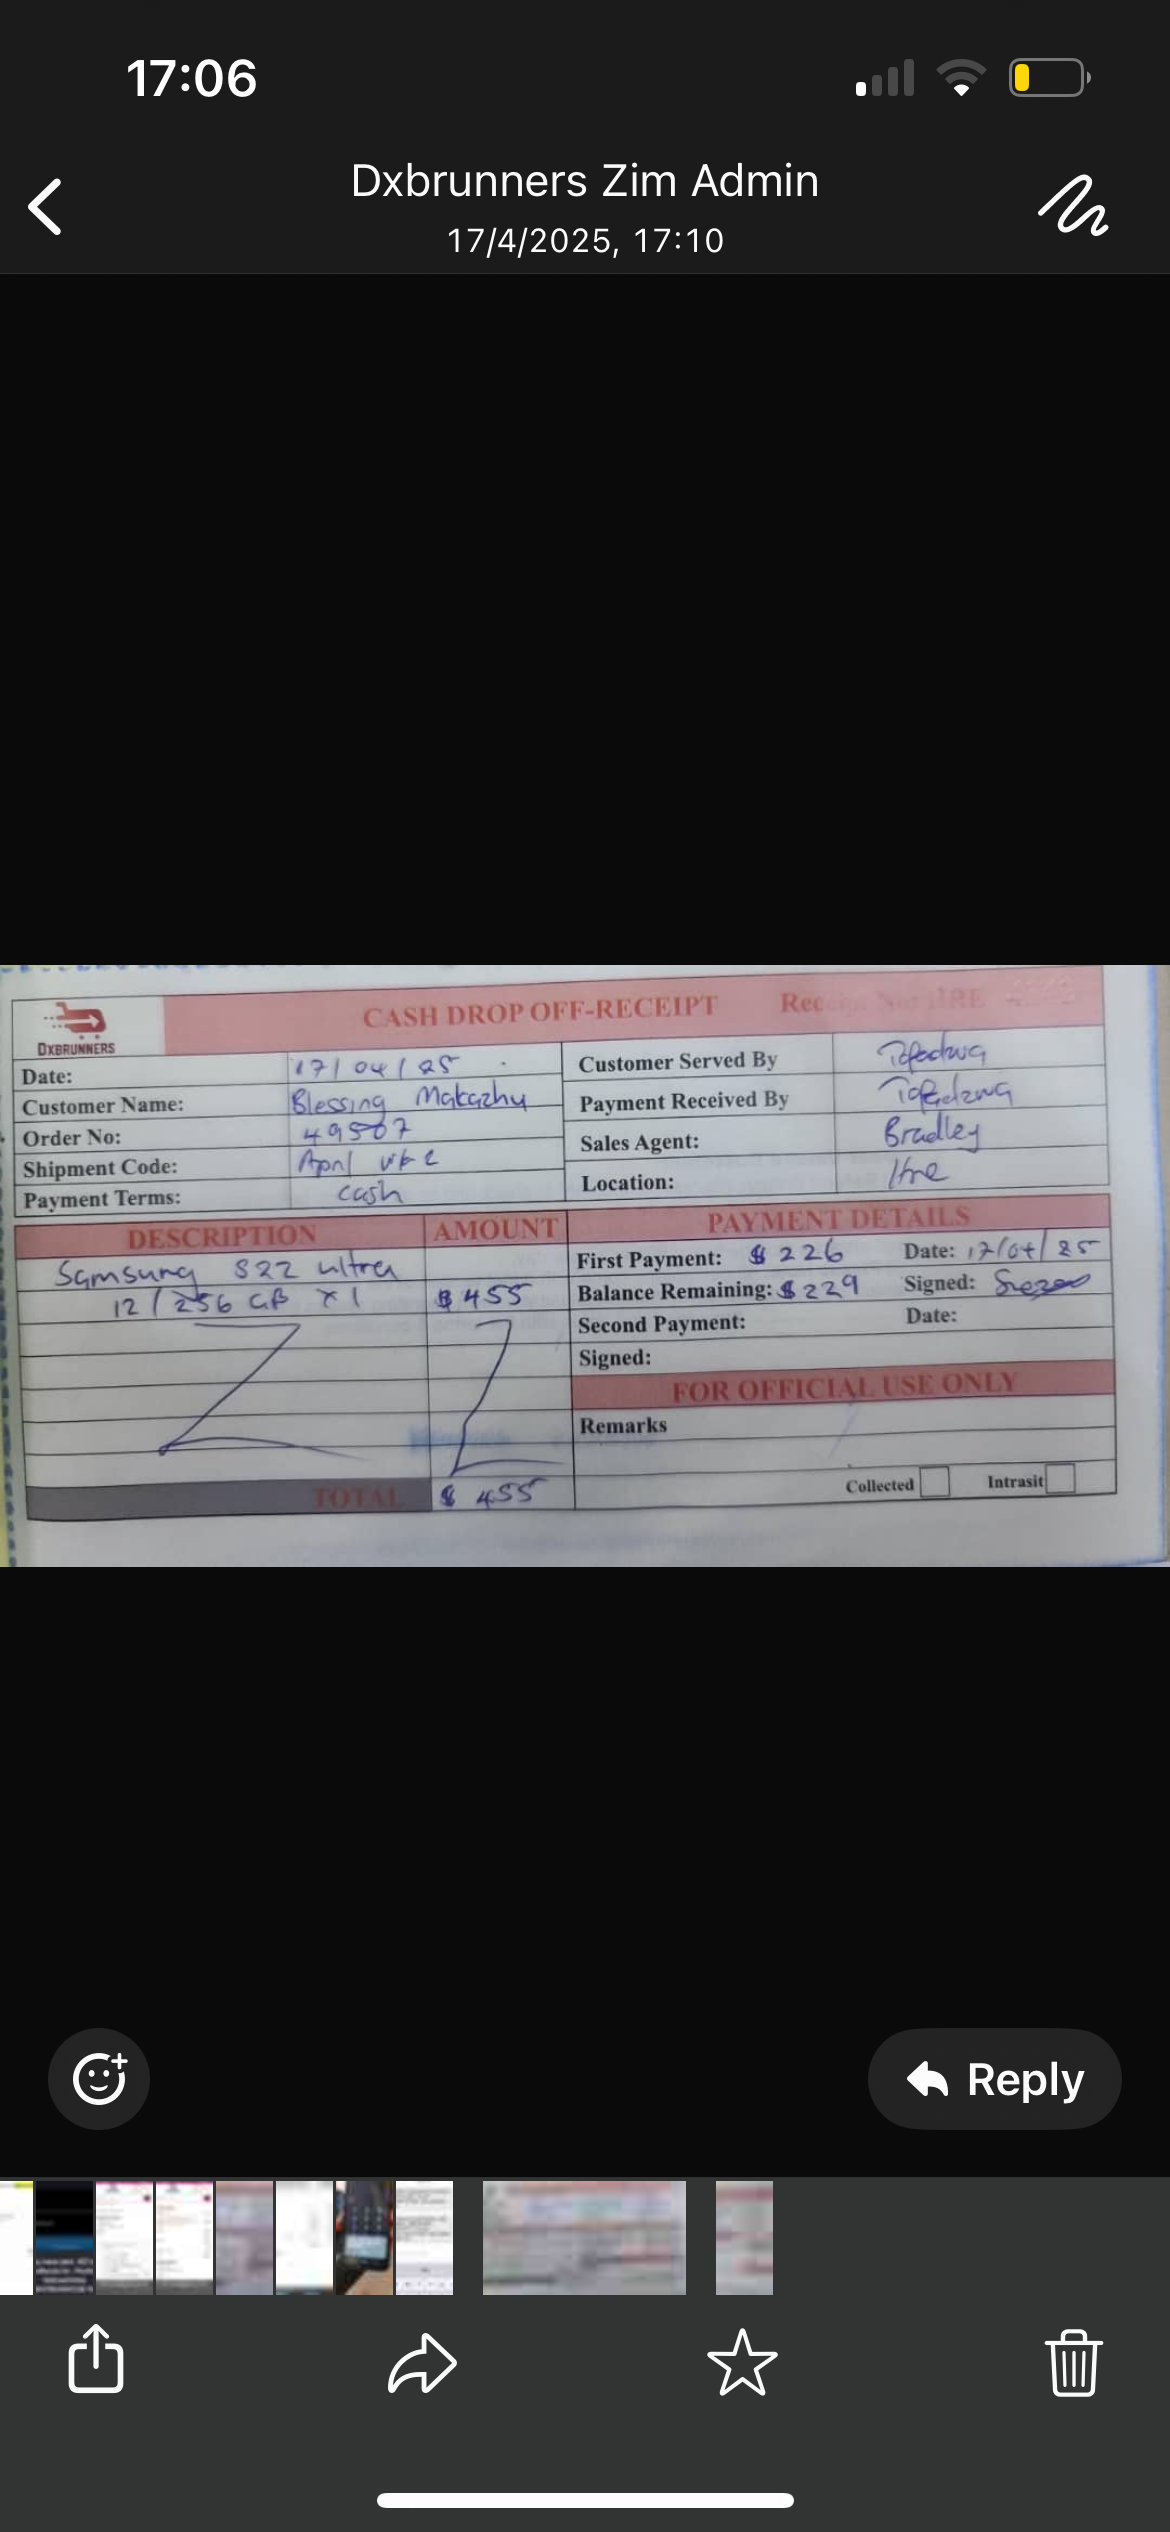 17:06
Dxbrunners Zim Admin
17/4/2025, 17:10
CASH DROP OFF-RECEIPT Receipt No: HRE
DXBRUNNERS
Date: 17/04/25
Customer Name: Blessing Makazhu
Order No: 49507
Shipment Code: April wk 2
Payment Terms: cash
Customer Served By Tafadzwa
Payment Received By Tafadzwa
Sales Agent: Bradley
Location: Hre
DESCRIPTION AMOUNT
Samsung S22 ultra
12/256 GB x1 $455
TOTAL $455
PAYMENT DETAILS
First Payment: $226 Date: 17/04/25
Balance Remaining: $229 Signed:
Second Payment: Date:
Signed:
FOR OFFICIAL USE ONLY
Remarks
Collected Intrasit
Reply